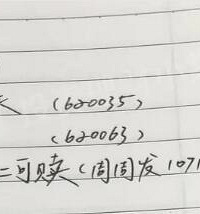 (620035)
(620063)
二可赎(周周发1071